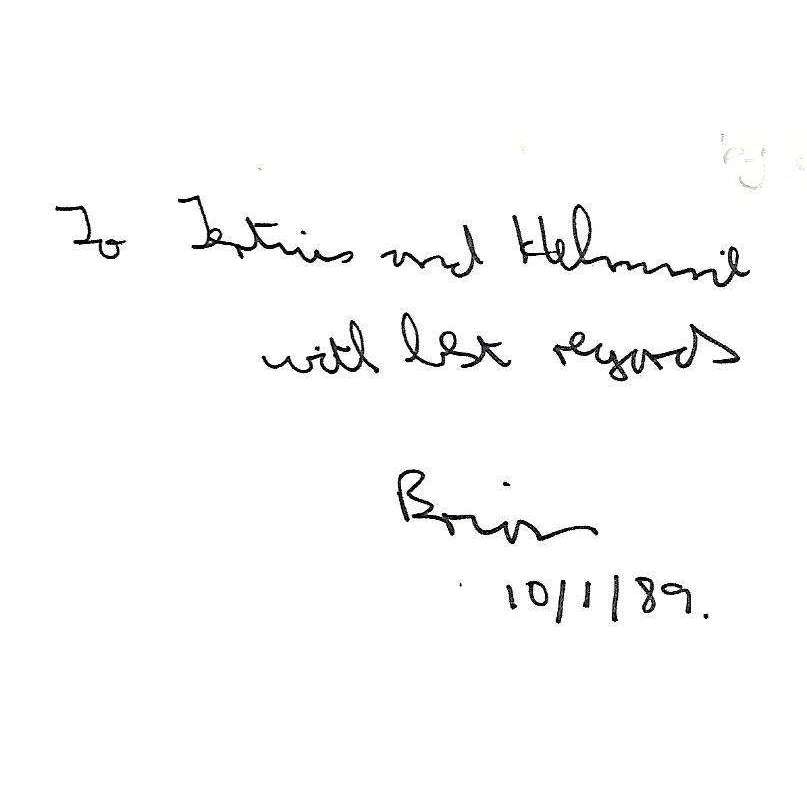 To Tertius and Helmmie
with best regards
Brian
10/1/89.